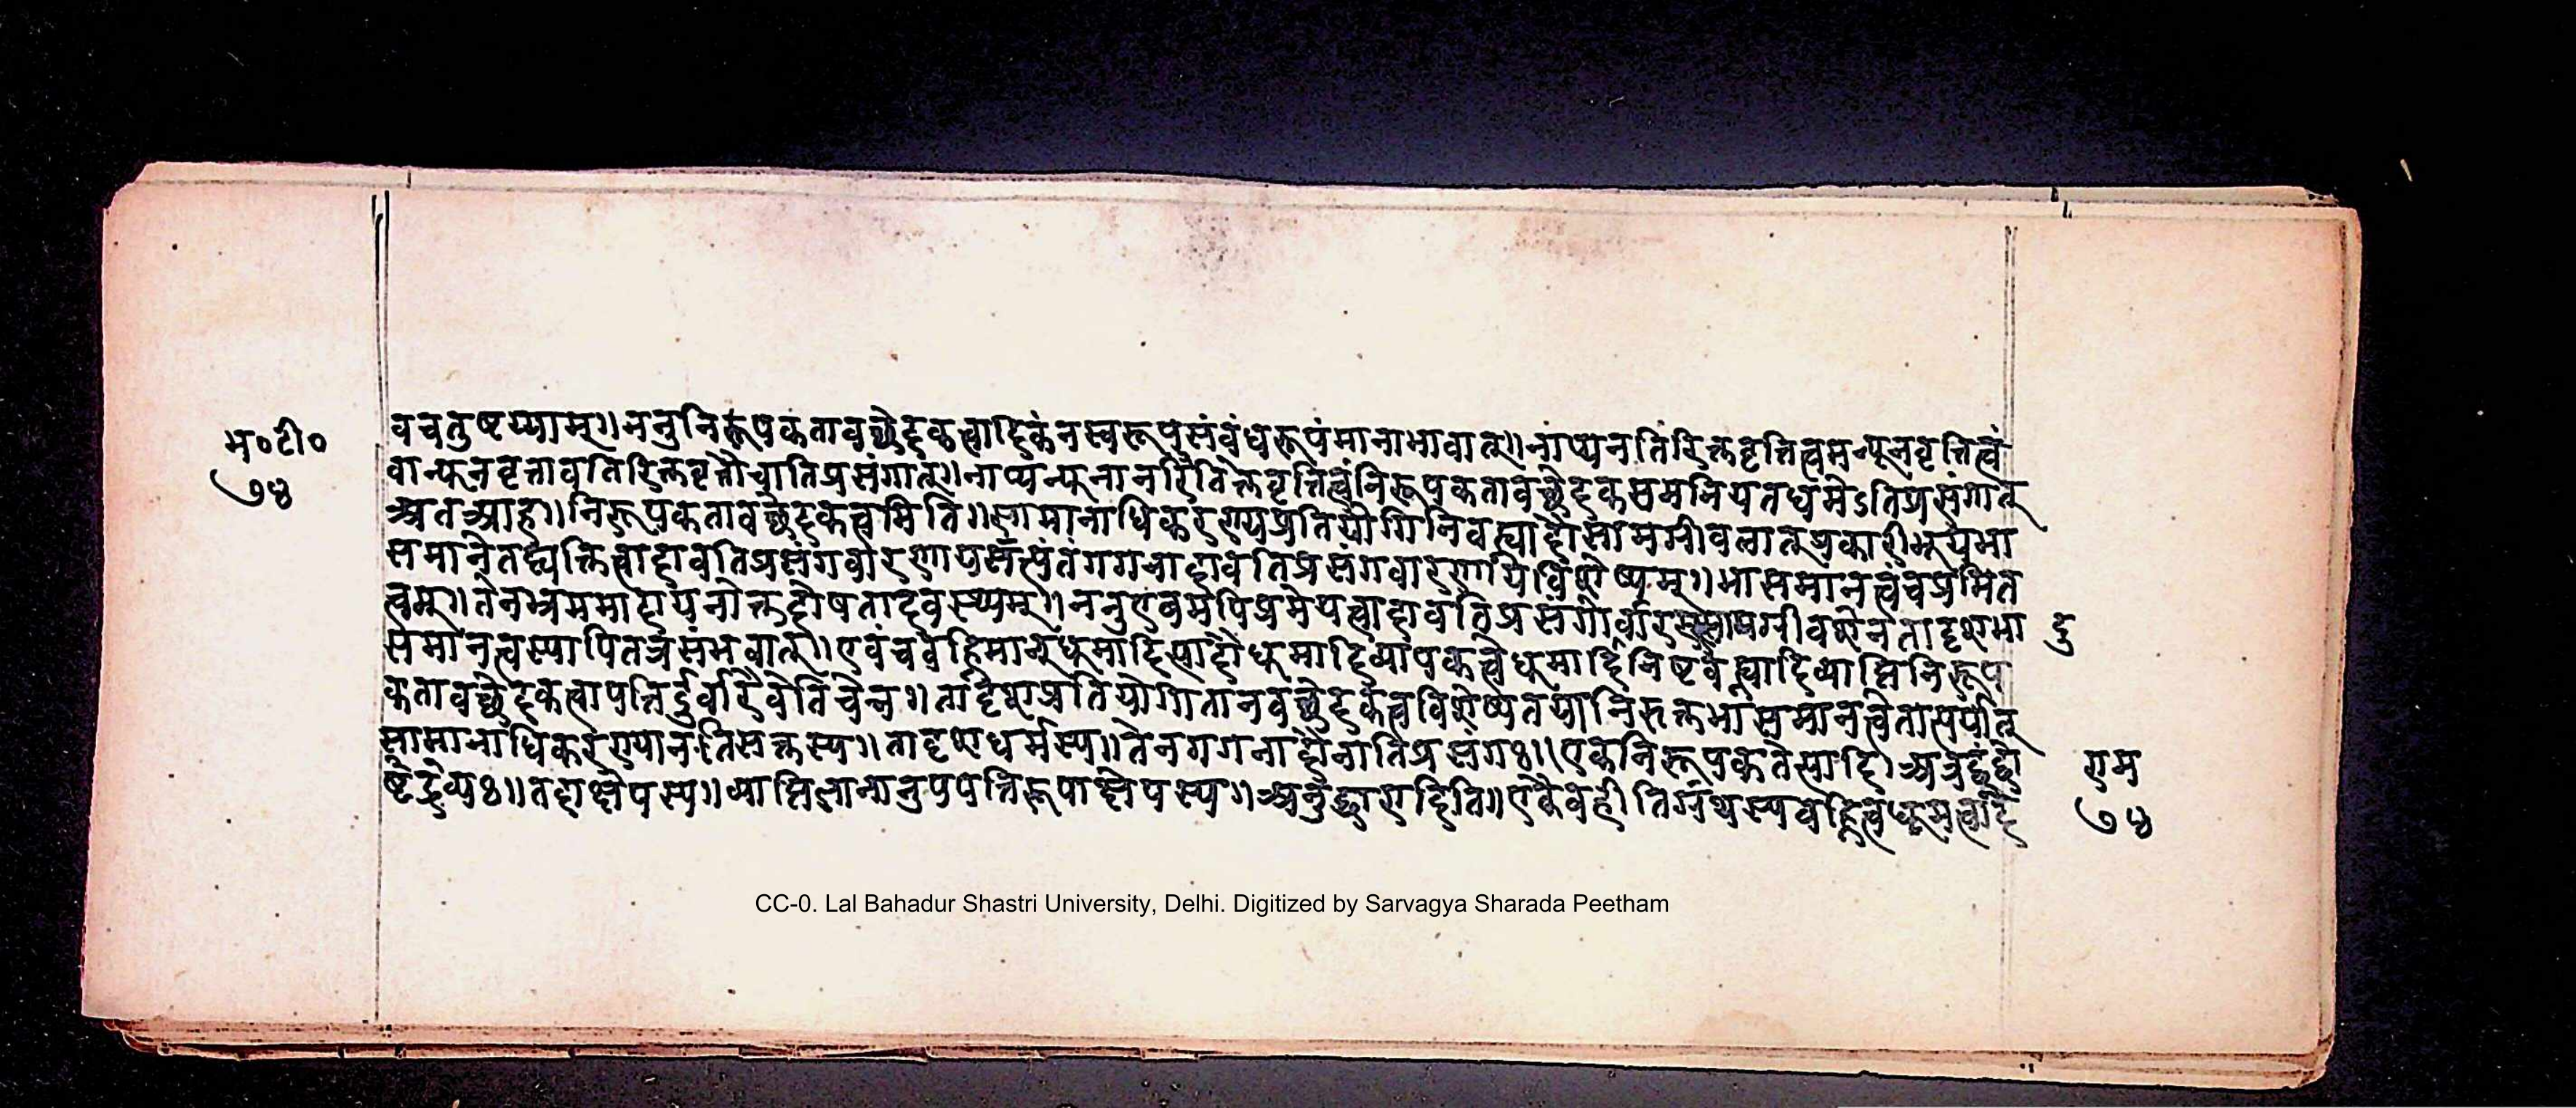 म॰टी॰
७४
वचतुष्टय्याम्॥ननुनिरूपकतावच्छेदकत्वादिकंनस्वरूपसंबंधरूपंमानाभावात्॥नाप्यनतिरिक्तवृत्तित्वमन्यूनवृत्तित्वं
वान्यूनवृत्तावतिरिक्तवृत्तौचातिप्रसंगात्॥नाप्यन्यूनानतिरिक्तवृत्तित्वंनिरूपकतावच्छेदकसमनियतधर्मेऽतिप्रसंगात्
अतआह॥निरूपकतावच्छेदकत्वमिति॥सामानाधिकरण्यप्रतियोगिनिवह्न्यादौसामग्रीवलात्प्रकारीभूयभा
समानेतद्व्यक्तित्वादावतिप्रसंगवारणायसत्यंतंगगनादावतिप्रसंगवारणायविशेष्यम्॥भासमानत्वंचप्रमित
त्वम्॥तेनभ्रममादायनोक्तदोषतादवस्थ्यम्॥ननुएवमपिप्रमेयत्वादावतिप्रसंगोर्वारस्सामग्रीवशेनतादृशभा
दु
समानत्वस्यापितत्रसंभवात्॥एवंचवह्निमान्धूमादित्यादौधूमादिव्यापकत्वेधूमादिनिष्टवह्न्यादिव्याप्तिनिरूप
कतावच्छेदकत्वापत्तिर्दुर्वारैवेतिचेन्न॥तादृशप्रतियोगितानवच्छेदकत्वविशेष्यतयानिरुक्तभासमानत्वेतात्पर्यात्
सामानाधिकरण्यानतिसक्तस्य॥तादृशधर्मस्य॥तेनगगनादौनातिप्रसंगः॥एकेनिरूपकतेत्यादि।अत्रेदं
ष्टंद्रव्यः॥तदाक्षेपस्य॥व्याप्तिज्ञानानुपपत्तिरूपाक्षेपस्य॥अनुद्धारादिति॥एकैवहीतिग्रंथस्यवह्नित्वधूमत्वादि
राम
७४
CC-0. Lal Bahadur Shastri University, Delhi. Digitized by Sarvagya Sharada Peetham